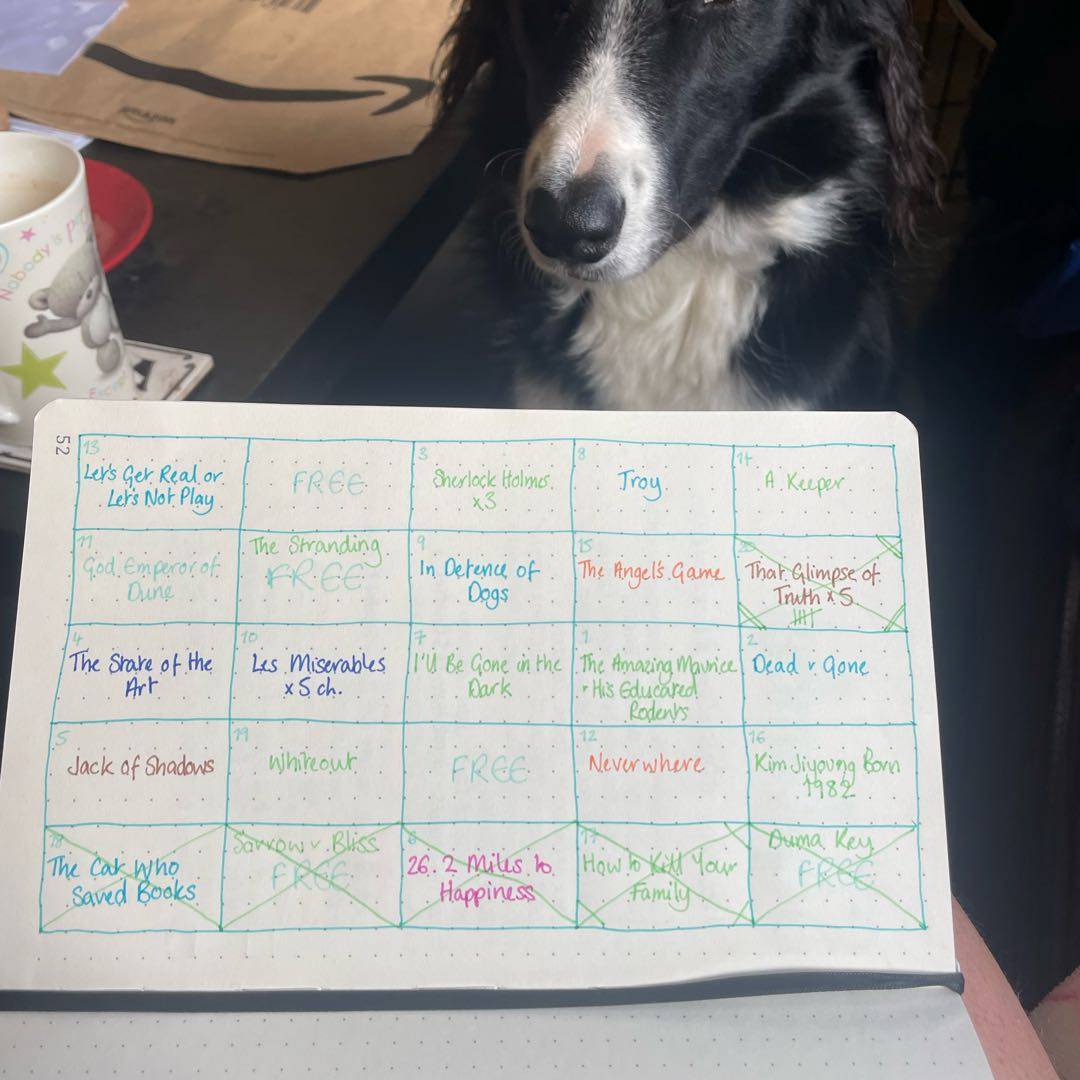 amazon
Nobody is per
Except
52
13
Let's Get Real or
Let's Not Play
FREE
3
Sherlock Holmes
x3
8
Troy
14
A Keeper
11
God Emperor of
Dune
The Stranding
FREE
9
In Defence of
Dogs
15
The Angel's Game
20
That Glimpse of
Truth x 5
4
The State of the
Art
10
Les Miserables
x 5 ch.
7
I'll Be Gone in the
Dark
1
The Amazing Maurice
+ His Educated
Rodents
2
Dead + Gone
5
Jack of Shadows
19
Whiteout
FREE
12
Neverwhere
16
Kim Jiyoung Born
1982
18
The Cat Who
Saved Books
Sorrow + Bliss
FREE
6
26.2 Miles to
Happiness
17
How to Kill Your
Family
Duma Key
FREE